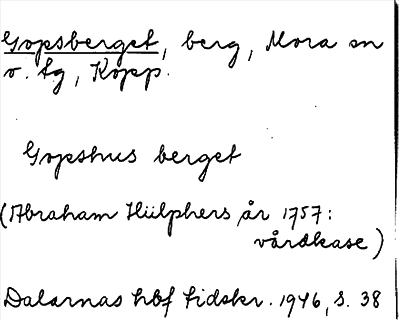 Gopsberget, berg, Mora sn
o. tg, Kopp.
Gopshus berget
(Abraham Hülphers år 1757:
vårdkase)
Dalarnas hbf tidskr. 1946, s. 38